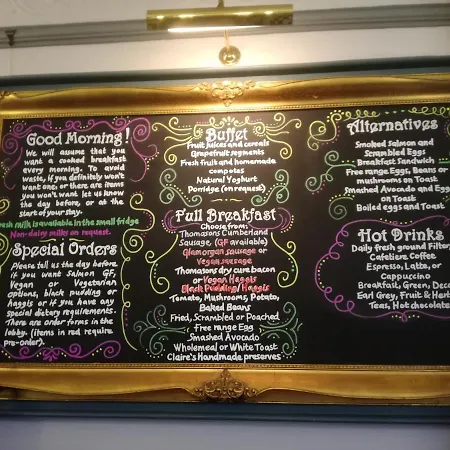 Good Morning!
We will assume that you
want a cooked breakfast
every morning. To avoid
waste, if you definitely won't
want one, or there are items
you won't want let us know
the day before, or at the
start of your stay.
resh milk is available in the small fridge
Non-dairy milks on request.
Special Orders
Please tell us the day before
if you want Salmon GF,
Vegan or Vegetarian
options, black pudding or
Haggis or if you have any
special dietary requirements.
There are order forms in the
lobby. (items in red require
pre-order).
Buffet
Fruit juices and cereals
Grapefruit segments
Fresh fruit and homemade
compotes
Natural Yoghurt
Porridge (on request)
Full Breakfast
Choose from:
Thomasons Cumberland
Sausage, (GF available)
Glamorgan sausage or
Vegan sausage
Thomasons dry cure bacon
or Vegan Haggis
Black Pudding/Haggis
Tomato, Mushrooms, Potato,
Baked Beans
Fried, Scrambled or Poached
Free range Egg
Smashed Avocado
Wholemeal or White Toast
Claire's Handmade preserves
Alternatives
Smoked Salmon and
Scrambled Egg
Breakfast Sandwich
Free range Eggs, Beans or
mushrooms on Toast
Smashed Avocado and Egg
on Toast
Boiled eggs and Toast
Hot Drinks
Daily fresh ground Filter,
Cafetiere Coffee
Espresso, Latte, or
Cappuccino
Breakfast, Green, Deca
Earl Grey, Fruit & Herb
Teas, Hot chocolate